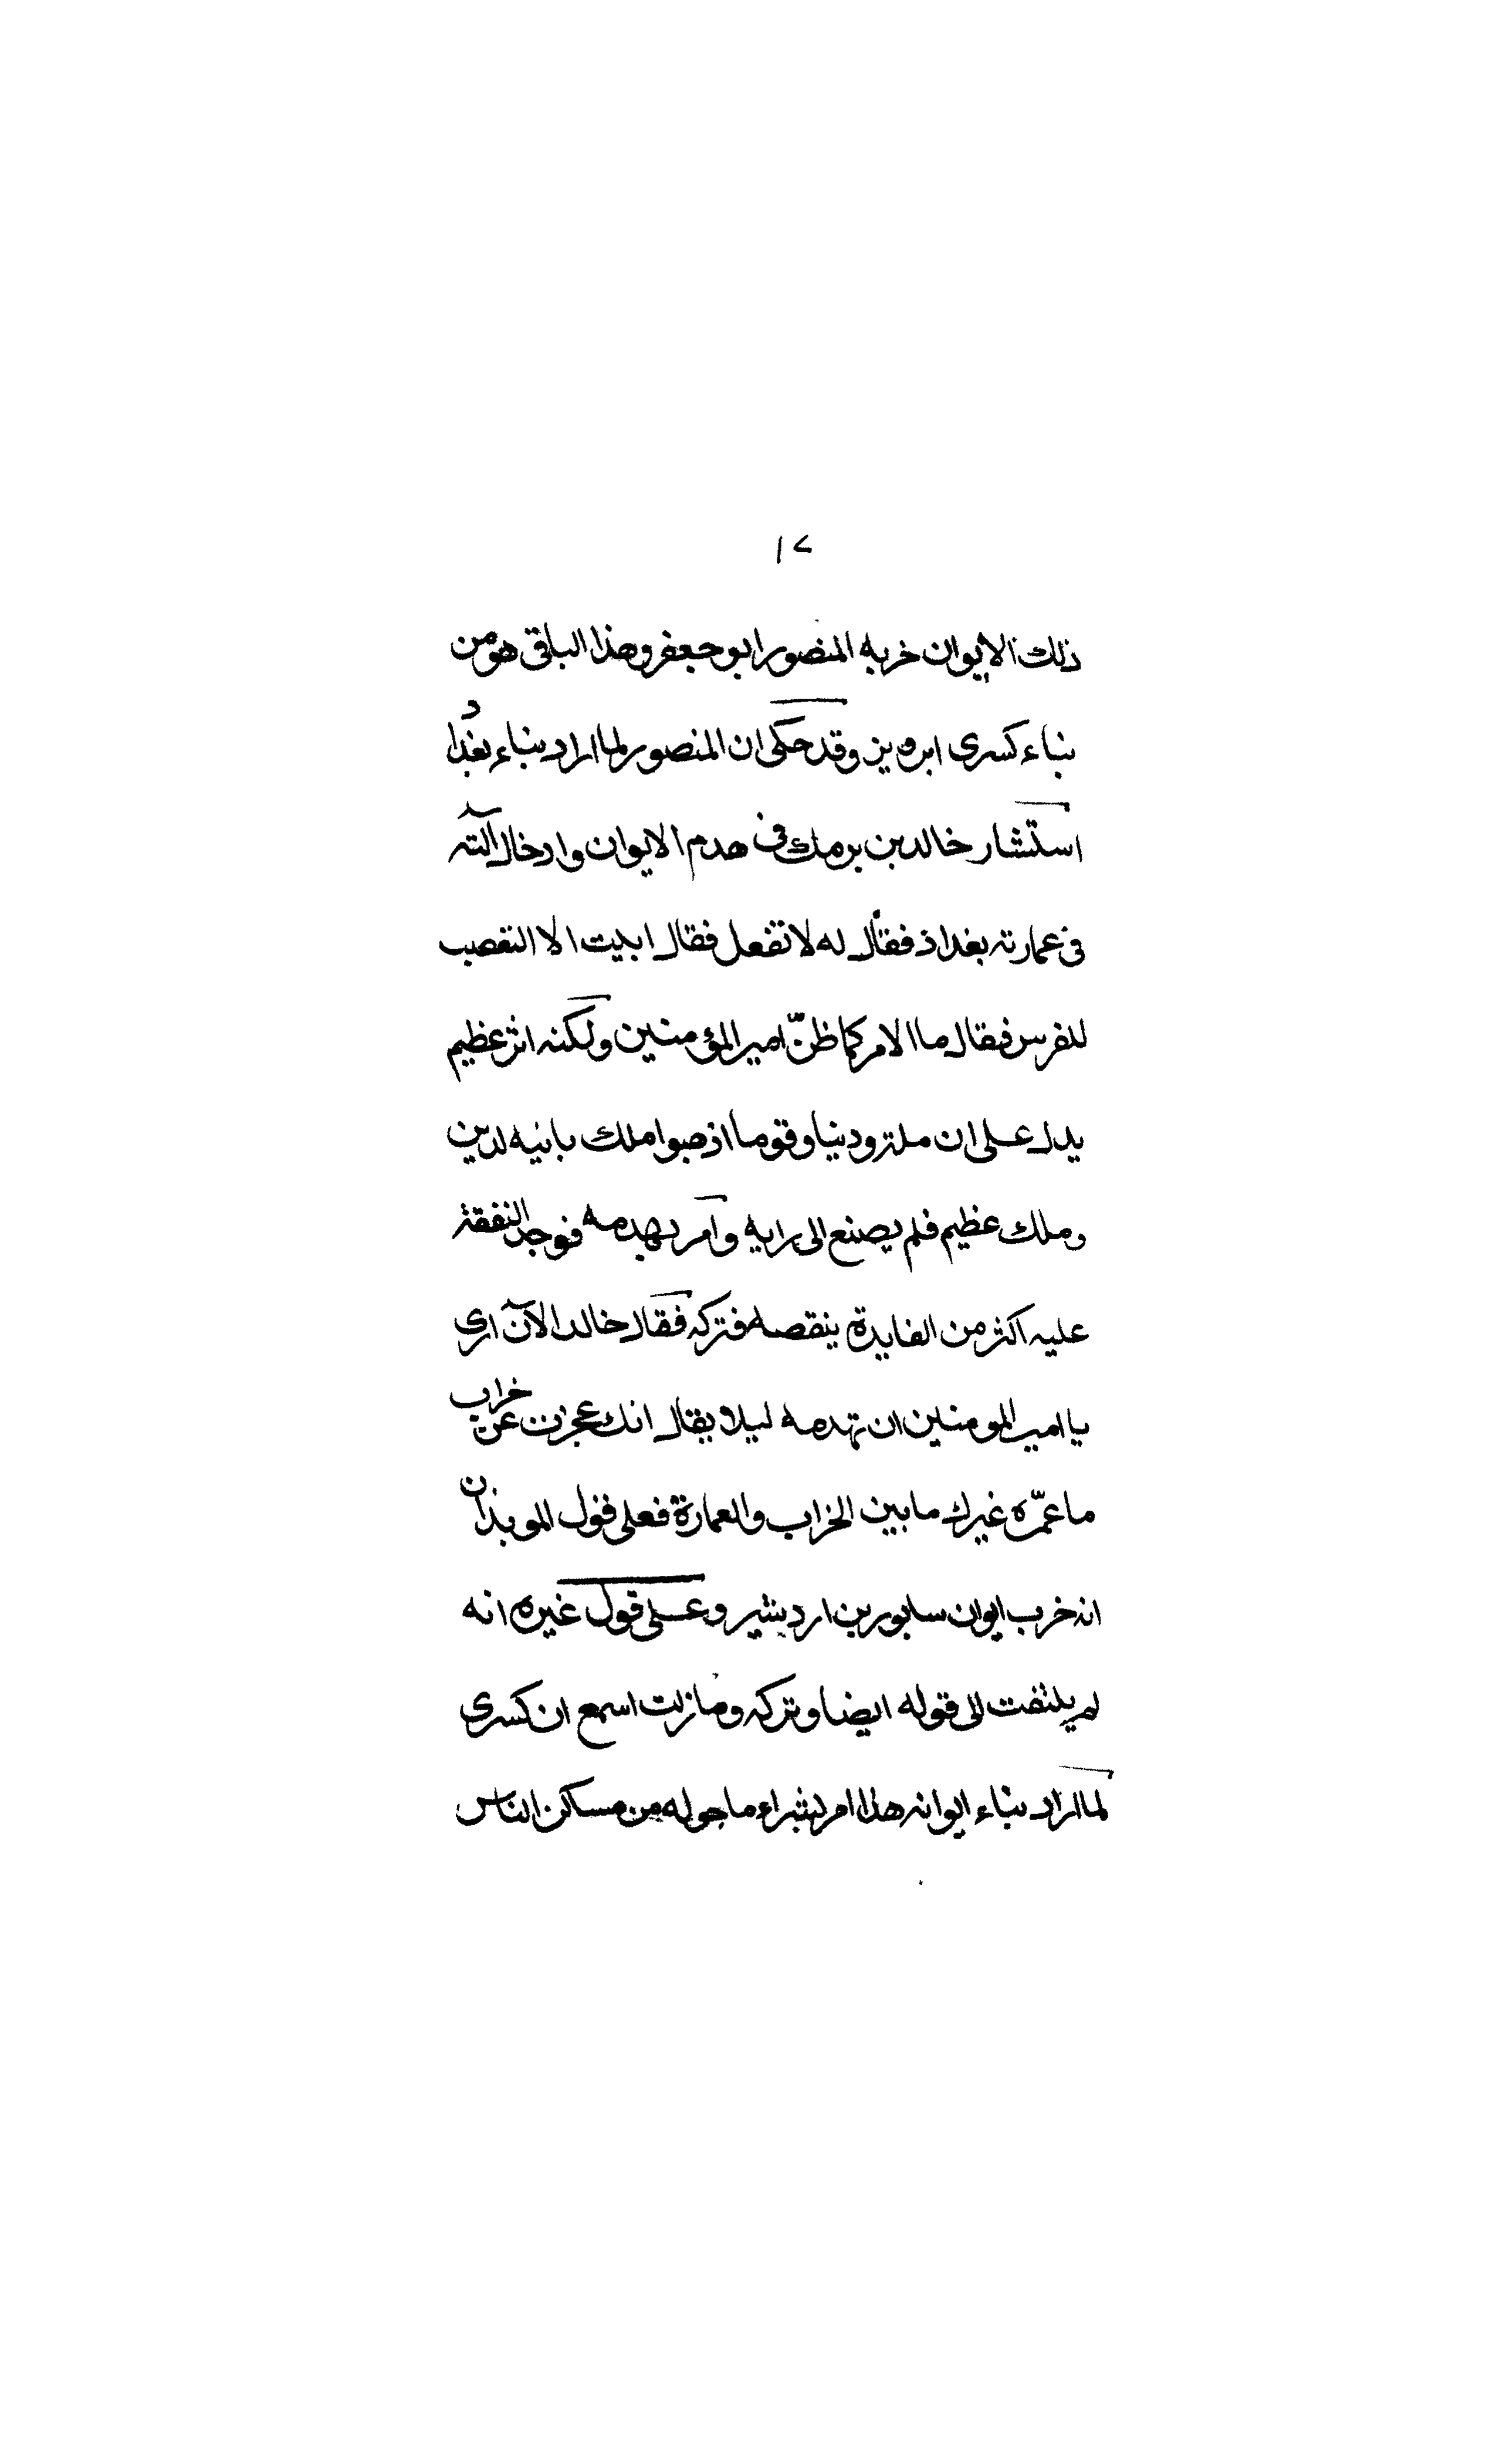 ١٧
ذلك الايوان خربه المنصور ابو جعفر وهذا الباقى هو من
بناء كسرى ابرويز وقد حكى ان المنصور لما اراد بناء بغداد
استشار خالد بن برمك فى هدم الايوان وادخال آلته
فى عمارته بغداذ فقال له لا تفعل فقال ابيت الا التعصب
للفرس فقال ما الامر كما ظنّ امير المؤمنين ولكنه اثر عظيم
يدل على ان ملة ودينا وقوما اذهبوا ملك بانيه لدين
وملك عظيم فلم يصنع الى رايه وامر بهدمه فوجد النفقة
عليه اكثر من الفايدة بنقصه فتركه فقال خالد الآن ارى
يا امير المومنين ان تهدمه ليلا يقال انك عجزت عن خراب
ما عمّره غيرك ما بين الخراب والعمارة فعلى قول الموبذان
انه خرب ايوان سابور بن اردشير وعلى قول غيره انه
لم يلتفت الى قوله ايضا وتركه وما زلت اسمع ان كسرى
لما اراد بناء ايوانه هذا امر بشراء ما حوله من مساكن الناس